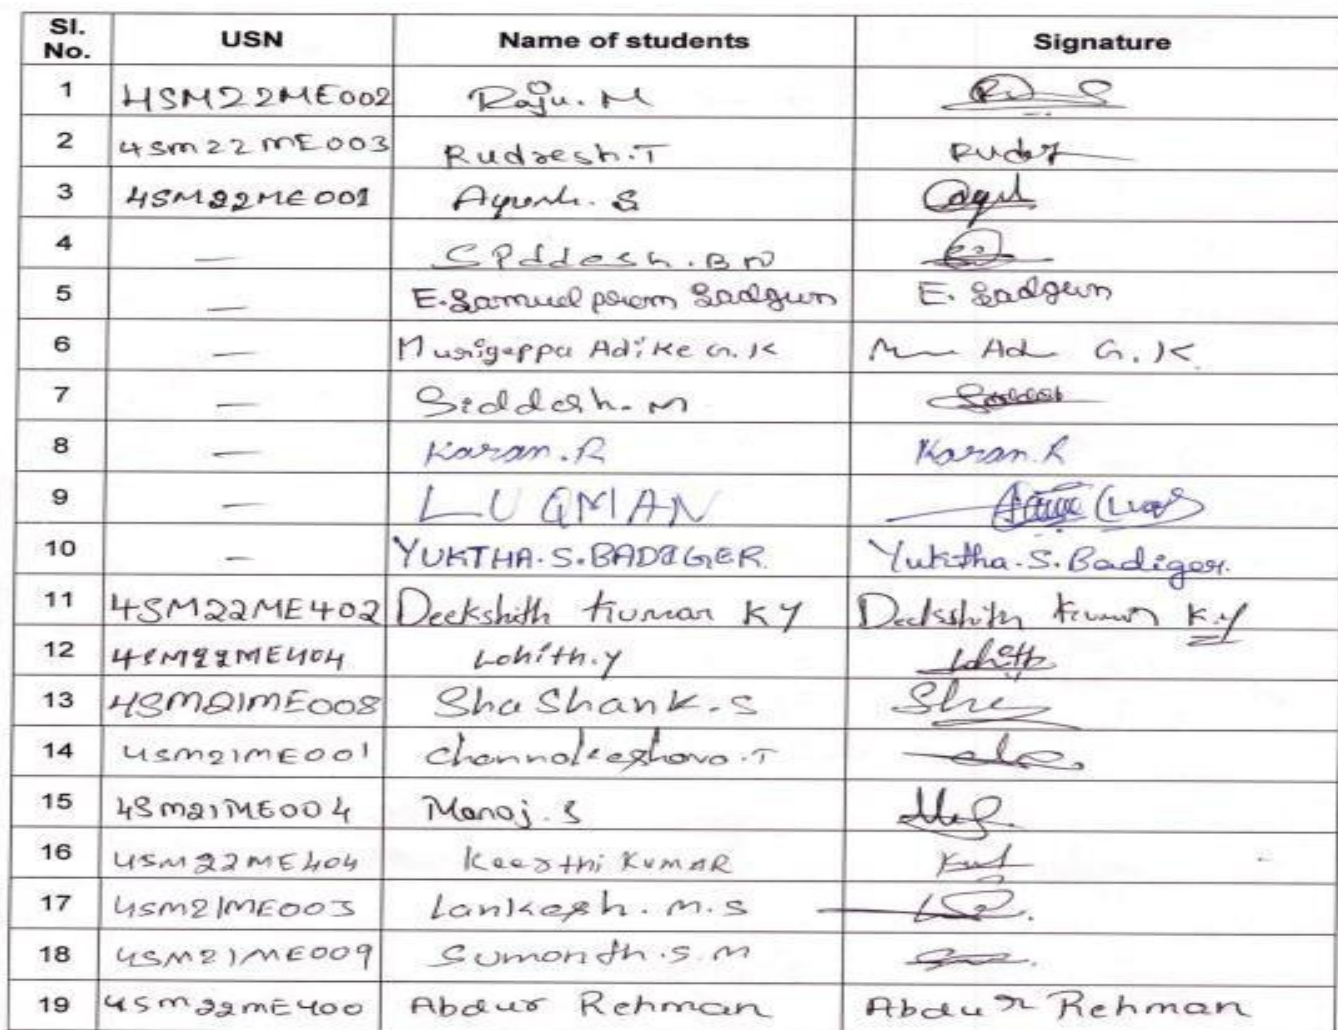 Sl. No. USN Name of students Signature
1 4SM22ME002 Raju. M
2 4SM22ME003 Rudresh.T Rudr
3 4SM22ME001 Ayush. S
4 — Siddesh. B N
5 — E. Samuel prem Sadgun E. Sadgun
6 — Murigeppa Adike G. K Ad G. K
7 — Siddesh. M
8 — Karan. R Karan. R
9 — LUQMAN
10 — YUKTHA. S. BADIGER. Yuktha. S. Badiger.
11 4SM22ME402 Deekshith Kumar K Y Deekshith Kumar K.Y
12 4SM22ME404 Lohith.y Lohith
13 4SM21ME008 ShaShank. S
14 4SM21ME001 Channakeshava. T
15 4SM21ME004 Manoj. S
16 4SM22ME404 Keerthi KUMAR
17 4SM21ME003 Lankesh. M. S
18 4SM21ME009 Sumanth. S. M
19 4SM22ME400 Abdur Rehman Abdur Rehman